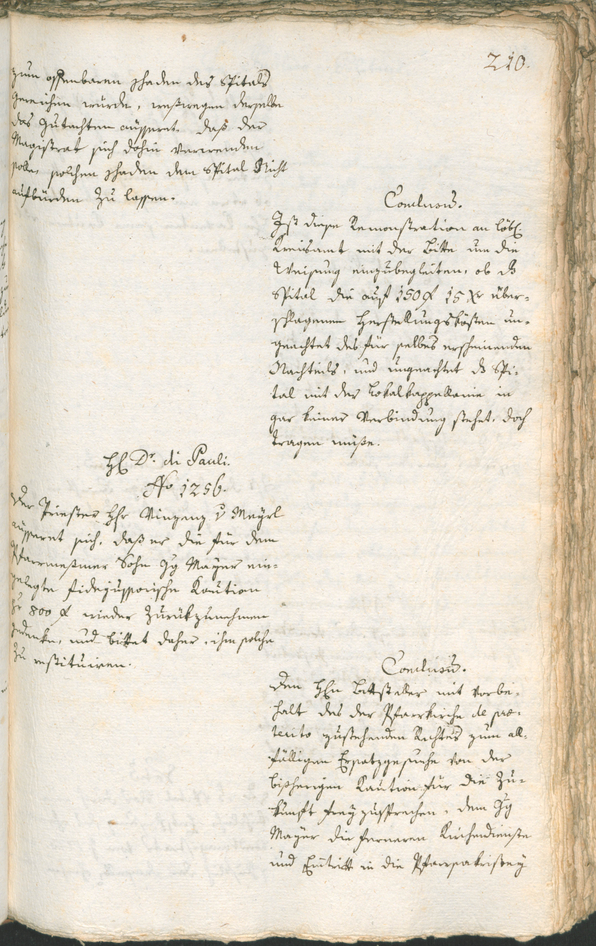 210.
zum offenbaren schaden des Spitals
gereichen würde, weßwegen derselbe
das Gutachten äusseret. daß der
Magistrat sich dahin verwenden
solle, solchen schaden dem Spital Nicht
aufbürden zu lassen.
Conclusum.
Ist diese Remonstration an löbl.
Kreisamt mit der Bitte um die
Weisung einzubegleiten, ob ds
Spital die auf 150 f 15 xr über-
schlagenen Herstellungskösten un-
geachtet des für selbes erscheinenden
Nachteils, und ungeachtet ds Spi-
tal mit der Lokalkappellanie in
gar keiner Verbindung stehet, doch
tragen müße.
H. Dr. di Pauli.
No 1256.
Der Priester Hr Vinzenz v Mayrl
äusseret sich, daß er die für den
Pfarrmeßmer Sohn Jg Mayer ein-
gelegte fidejussorische Kaution
pr 800 f wieder zurükzunehmen
gedenke, und bittet daher, ihm solche
zu restituiren.
Conclusum.
Den Hrn Bittsteller mit Vorbe-
halt des der Pfarrkirche de prae-
terito zustehenden Rechtes zum all-
fälligen Ersatzgesuche von der
bisherigen Kaution für die Zu-
kunft freyzusprechen, dem Jg
Mayer die ferneren Kirchendienste
und Eintritt in die Pfarrsakristey